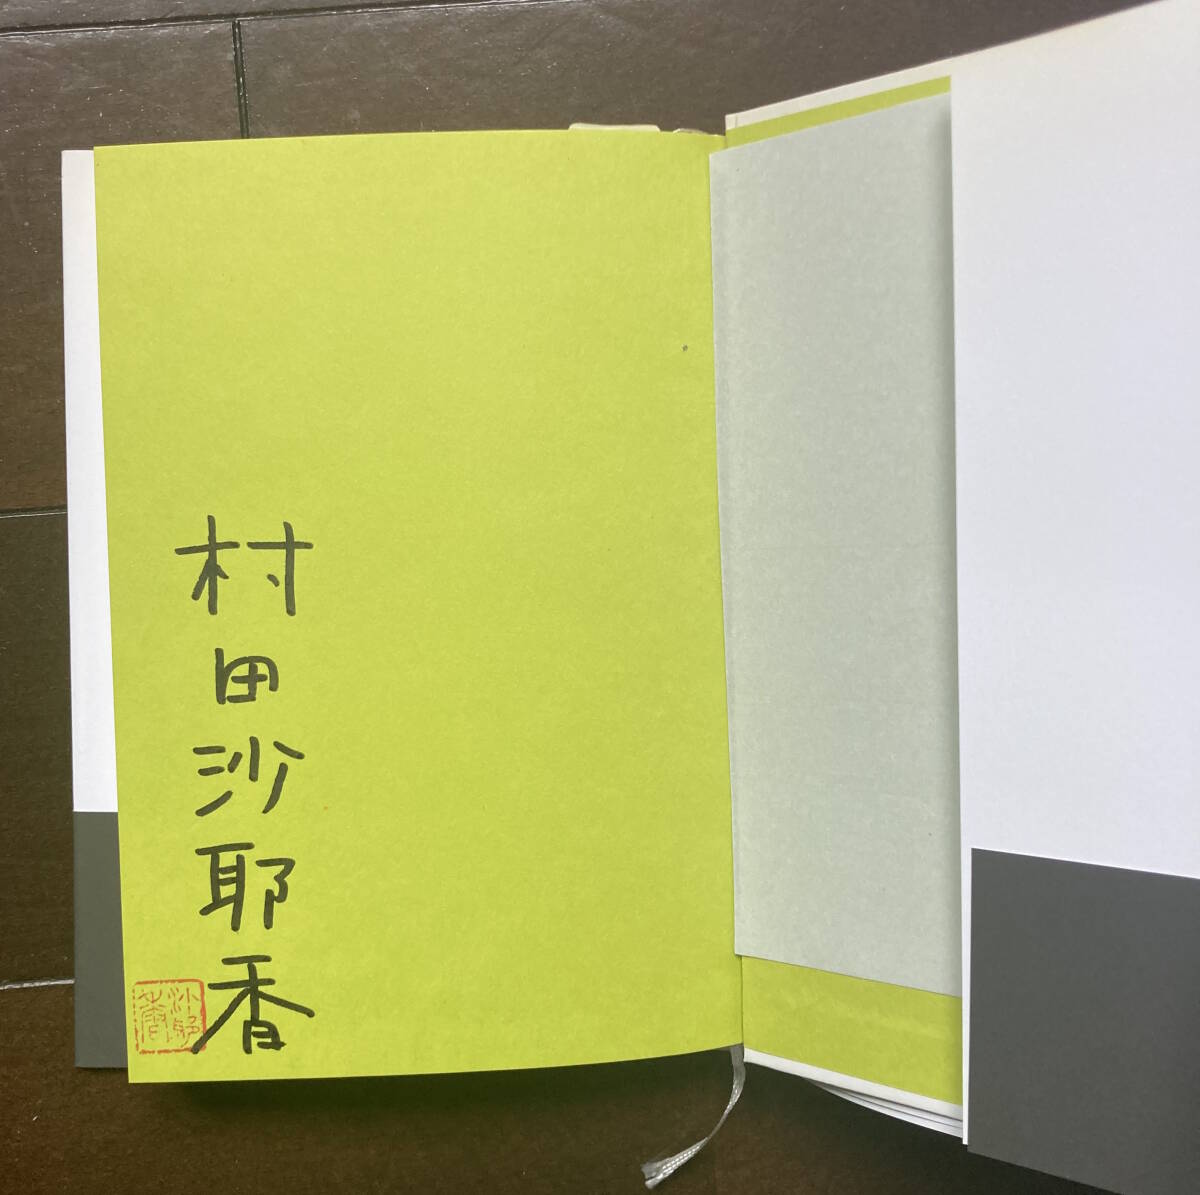 村田沙耶香
沙耶香